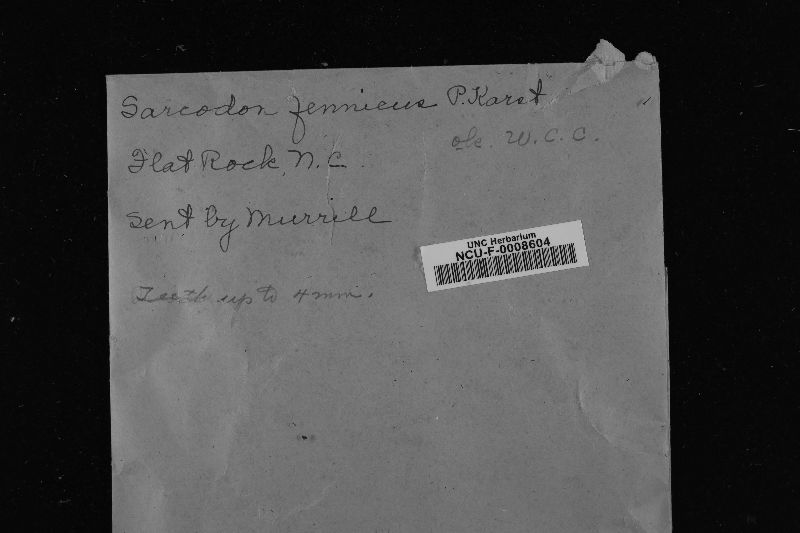 Sarcodon fennicus P. Karst
ok. W.C.C.
Flat Rock, N.C.
Sent by Murrill
UNC Herbarium
NCU-F-0008604
Teeth up to 4 mm.